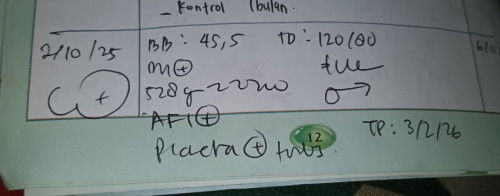 - Kontrol 1bulan.
2/10/25
BB: 45,5 TD: 120/80
m⊕
528g ~ 22
AFI ⊕
Placta ⊕ fubs.
12
TP: 3/2/26
6/11